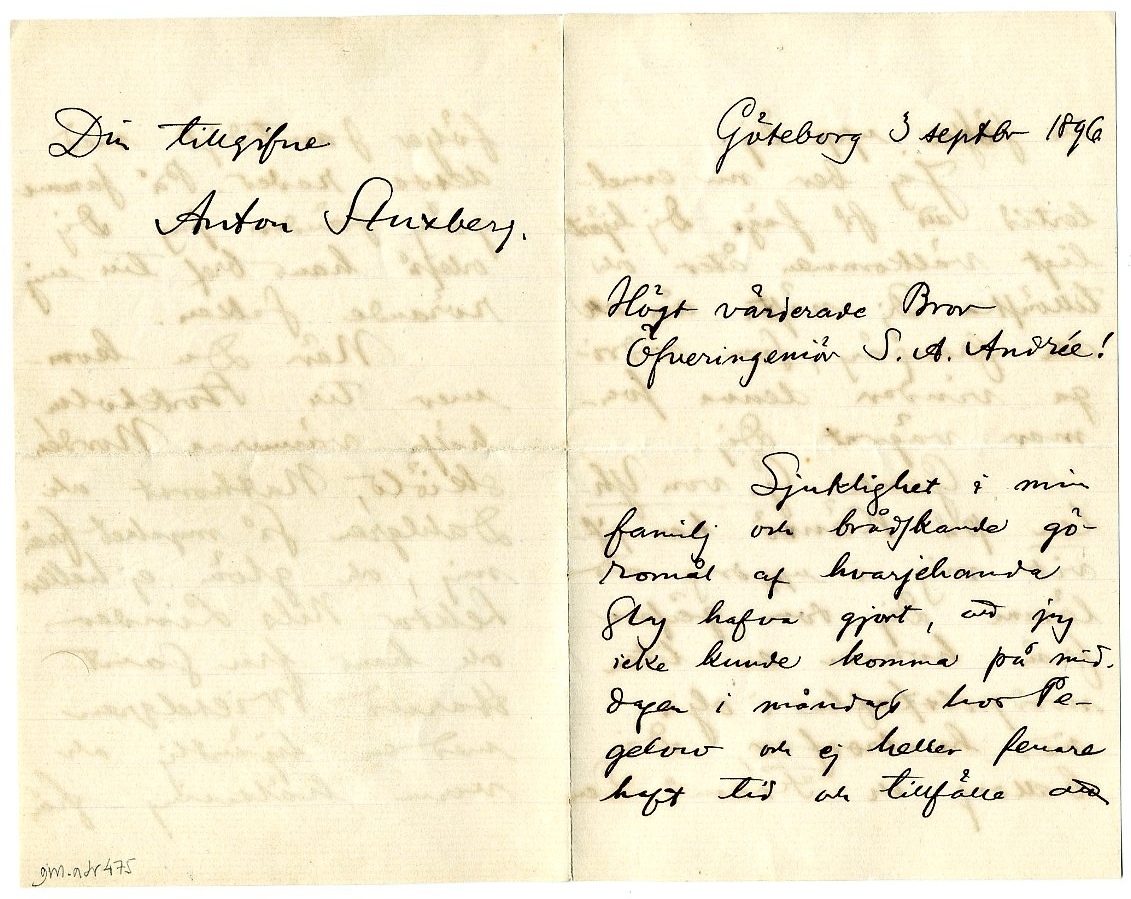 Göteborg 3 septbr 1896
Högt värderade Bror
Öfveringeniör S. A. Andrée!
Sjuklighet i min
familj och brådskande gö-
romål af hvarjehanda
slag hafva gjort, att jag
icke kunde komma på mid-
dagen i måndags hos Pe-
gelow och ej heller senare
haft tid och tillfälle att
Din tillgifne
Anton Stuxberg.
gm-ndr 475